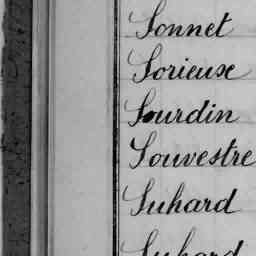 Sonnet
Sorieuse
Sourdin
Souvestre
Suhard
Suhard